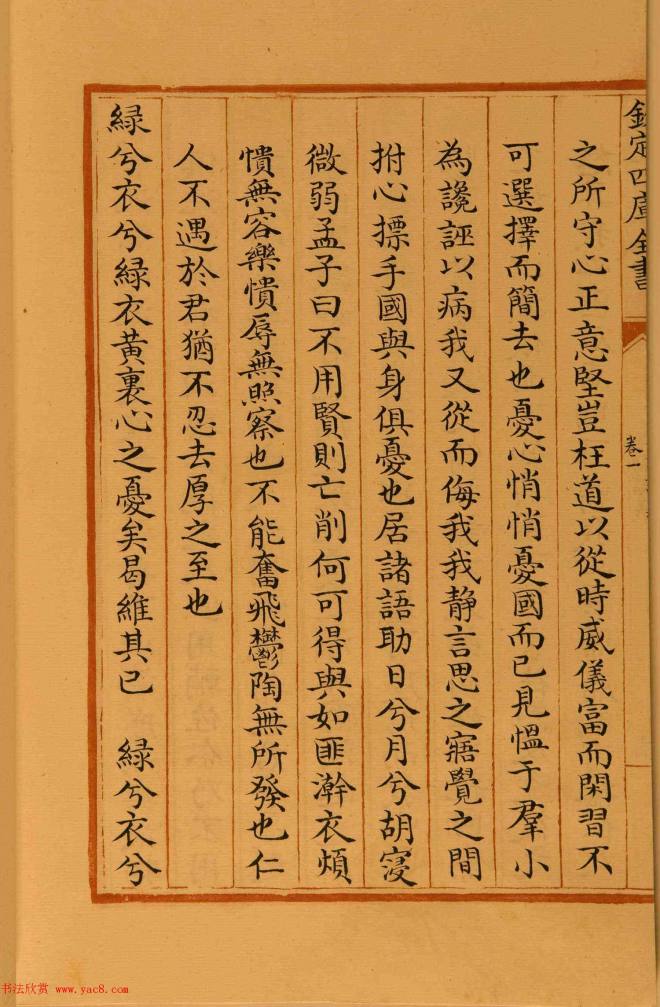 欽定四庫全書
卷二
之所守心正意堅豈枉道以從時威儀富而閑習不
可選擇而簡去也憂心悄悄憂國而已見愠于羣小
為讒誣以病我又從而侮我我静言思之寤覺之間
拊心摽手國與身俱憂也居諸語助日兮月兮胡寖
微弱孟子曰不用賢則亡削何可得與如匪澣衣煩
憒無容樂憒辱無照察也不能奮飛鬱陶無所發也仁
人不遇於君猶不忍去厚之至也
緑兮衣兮緑衣黄裏心之憂矣曷維其已　緑兮衣兮
书法欣赏 www.yac8.com